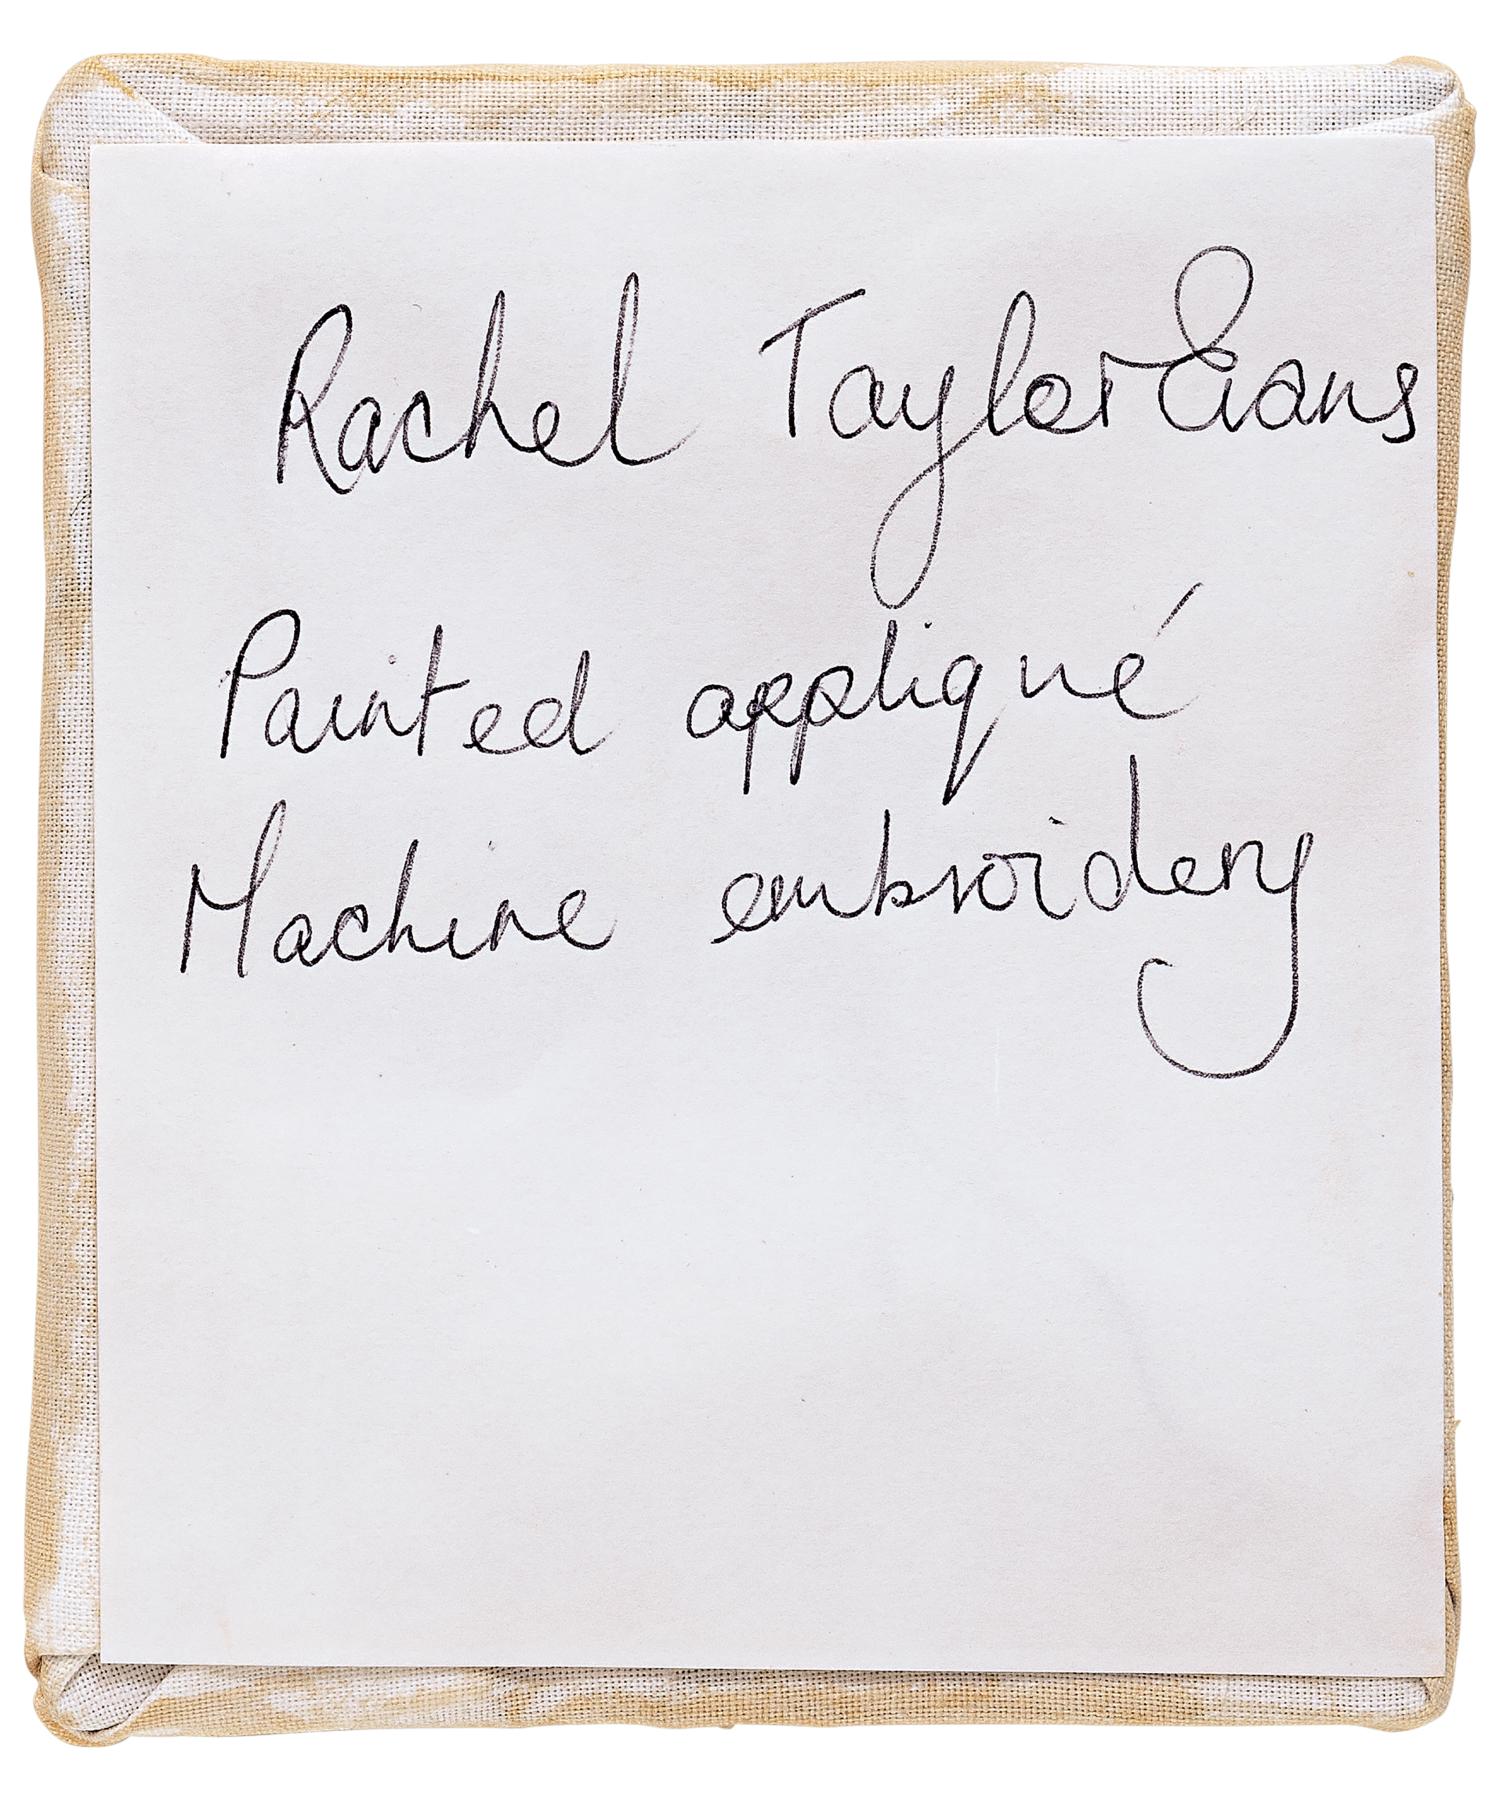 Rachel Taylor Evans
Painted appliqué
Machine embroidery